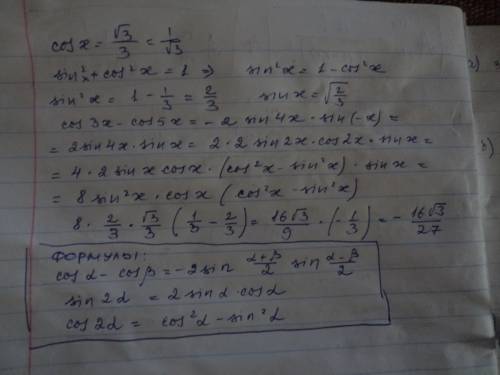 cos x = √3/3 = 1/√3
sin²x + cos²x = 1 ⇒ sin²x = 1 - cos²x
sin²x = 1 - 1/3 = 2/3 sin x = √(2/3)
cos 3x - cos 5x = - 2 sin 4x · sin(-x) =
= 2 sin 4x · sin x = 2 · 2 sin 2x · cos 2x · sin x =
= 4 · 2 sin x cos x · (cos²x - sin²x) · sin x =
= 8 sin²x · cos x (cos²x - sin²x)
8 · 2/3 · √3/3 (1/3 - 2/3) = 16√3/9 · (-1/3) = - 16√3/27
ФОРМУЛЫ:
cos α - cos β = -2 sin (α+β)/2 sin (α-β)/2
sin 2α = 2 sin α · cos α
cos 2α = cos²α - sin²α